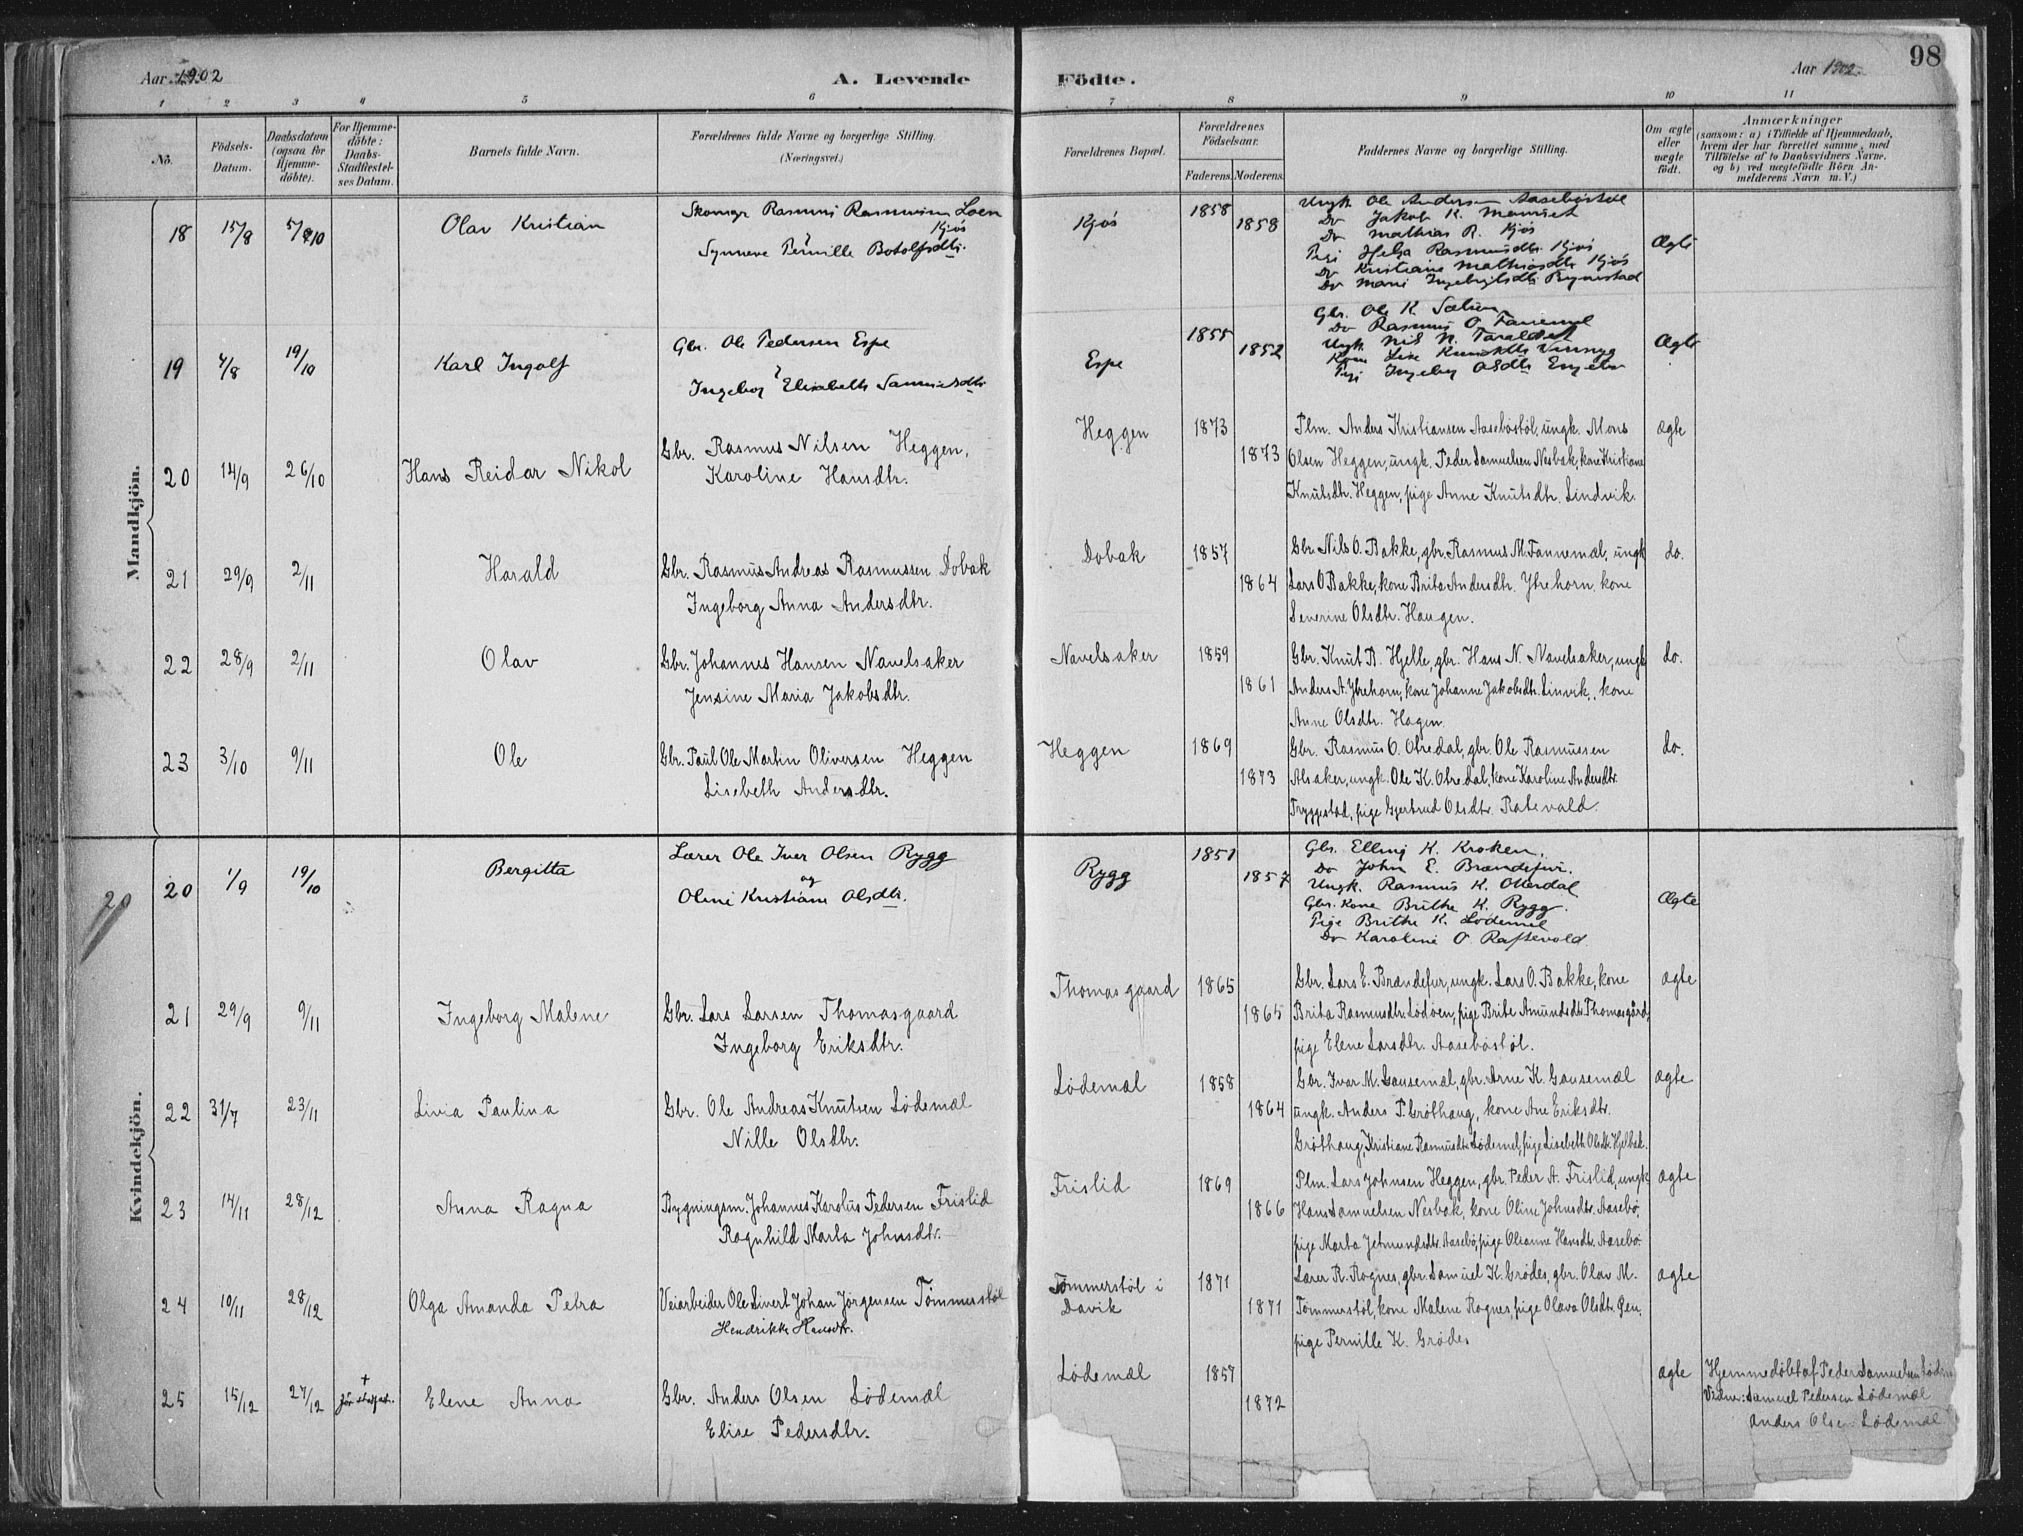 98
Aar 1902 A. Levende Födte. Aar 1902
1 2 3 4 5 6 7 8 9 10 11
No.
Födsels-Datum.
Daabsdatum (ogsaa for Hjemme-döbte).
For Hjemme-döbte: Daabs-Stadfæstel-ses Datum.
Barnets fulde Navn.
Forældrenes fulde Navne og borgerlige Stilling.
(Næringsvei.)
Forældrenes Bopæl.
Forældrenes Födselsaar.
Faderens. Moderens.
Faddernes Navne og borgerlige Stilling.
Om ægte eller uægte födt.
Anmærkninger
(saasom: a) i Tilfælde af Hjemmedaab, hvem der har forrettet samme, med Tilföielse af to Daabsvidners Navne, og b) ved uægtefödte Börn An-melderens Navn m. V.)
Mandkjön.
18 15/8 5/10 Olav Kristian
Skomgr Rasmus Rasmussen Loen
Kjós
Synneve Pernille Botolfsdtr.
Kjós 1858 1858
Ungk Ole Andersen Aasebøstøl
Do Jakob K.
Do Mathias R. Kjós
Pige Helga Rasmusdtr Kjós
Do Kristiane Mathiasdtr Kjós
Do Marie Ingebrigtsdtr Rynestad
Ægte
19 4/8 19/10 Karl Ingolf
Gbr. Ole Pedersen Espe
Ingeborg Elisabeth Samuelsdtr
Espe 1855 1852
Gbr. Ole K. Sætren
Do Rasmus O. Fannemel
Ungk Nils N. Taraldset
Kone Lise
Pige Ingeborg Olsdtr
Ægte
20 14/9 26/10 Hans Reidar Nikol
Gbr. Rasmus Nilsen Heggen,
Karoline Hansdtr.
Heggen 1873 1873
Plm. Anders Kristiansen Aasebøstøl, ungk. Mons
Olsen Heggen, ungk. Peder Samuelsen Nesbak, kone Kristiane
Knutsdtr. Heggen, pige Anne Knutsdtr. Lindvik.
ægte
21 29/9 2/11 Harald
Gbr. Rasmus Andreas Rasmussen Dobak
Ingeborg Anna Andersdtr.
Dobak 1857 1864
Gbr. Nils O. Bakke, gbr. Rasmus M. Fannemæl, ungk
Lars O. Bakke, kone Brita Andersdtr. Ytrehorn, kone
Severine Olsdtr. Haugen.
do.
22 28/9 2/11 Olav
Gbr. Johannes Hansen Navelsaker
Jensine Maria Jakobsdtr.
Navelsaker 1859 1861
Gbr. Knut R. Hjelle, gbr. Hans N. Navelsaker, ungk
Anders A. Ytrehorn, kone Johanne Jakobsdtr. Linvik, kone
Anne Olsdtr. Hagen.
do.
23 3/10 9/11 Ole
Gbr. Paul Ole Martin Oliversen Heggen
Lisebeth Andersdtr.
Heggen 1869 1873
Gbr. Rasmus O. Otredal, gbr. Ole Rasmussen
Alsaker, ungk. Ole K. Otredal, kone Karoline Andersdtr.
Tryggestad, pige Gjertrud Olsdtr. Ratevald.
do.
Kvindekjön.
20
20 1/9 19/10 Bergitta
Lærer Ole Iver Olsen Rygg
og
Oline Kristiane Olsdtr.
Rygg 1851 1857
Gbr. Elling K. Kroken.
Do John E. Brændefur.
Ungk. Rasmus K. Otterdal
Gbr. kone Brithe K. Rygg.
Pige Brithe K. Lødemel
Do Karoline O Raftevold.
Ægte
21 29/9 9/11 Ingeborg Malene
Gbr. Lars Larsen Thomasgaard
Ingeborg Eriksdtr.
Thomasgaard 1865 1865
Gbr. Lars E. Brændefur, ungk. Lars O. Bakke, kone
Brita Rasmusdtr. Lødøen, pige Brite Amundsdtr. Thomasgård,
pige Elene Larsdtr. Aasebøstøl.
ægte
22 31/7 23/11 Livia Paulina
Gbr. Ole Andreas Knutsen Lødemæl
Nille Olsdtr.
Lødemæl 1858 1864
Gbr. Ivar M. Gausemæl, gbr. Arne K. Gausemæl
ungk. Anders P. Grøthaug, kone Ane Eriksdtr.
Grøthaug, Kristiane Rasmusdtr. Lødemel, pige Lisebeth Olsdtr. Hjelbak.
ægte
23 14/11 28/12 Anna Ragna
Bygningsm. Johannes Karolus Pedersen Frislid
Ragnhild Marta Johnsdtr.
Frislid 1869 1866
Plm. Lars Johnsen Heggen, gbr. Peder A. Frislid, ungk
Hans Samuelsen Nesbak, kone Oline Johnsdtr. Aasebø,
pige Marta Jetmundsdtr. Aasebø, pige Olianne Hansdtr. Aasebø.
ægte
24 10/11 28/12 Olga Amanda Petra
Veiarbeider Ole Sivert Johan Jörgensen Tømmerstøl
Hendrikke Hansdtr.
Tømmerstøl i
Davik 1871 1871
Lærer R. Rognes, gbr. Samuel K. Grødes, gbr. Olav M.
Tømmerstøl, kone Malene Rognes, pige Olava Olsdtr. Gen,
pige Pernille K. Grødes
ægte
25 15/12 27/12 + før stadfæst. Elene Anna
Gbr. Anders Olsen Lødemæl
Elise Pedersdtr.
Lødemæl 1857 1872
ægte
Hjemmedøbt af Peder Samuelsen
Vidner: Samuel Pedersen Lødemæl
Anders Olsen Lødemæl